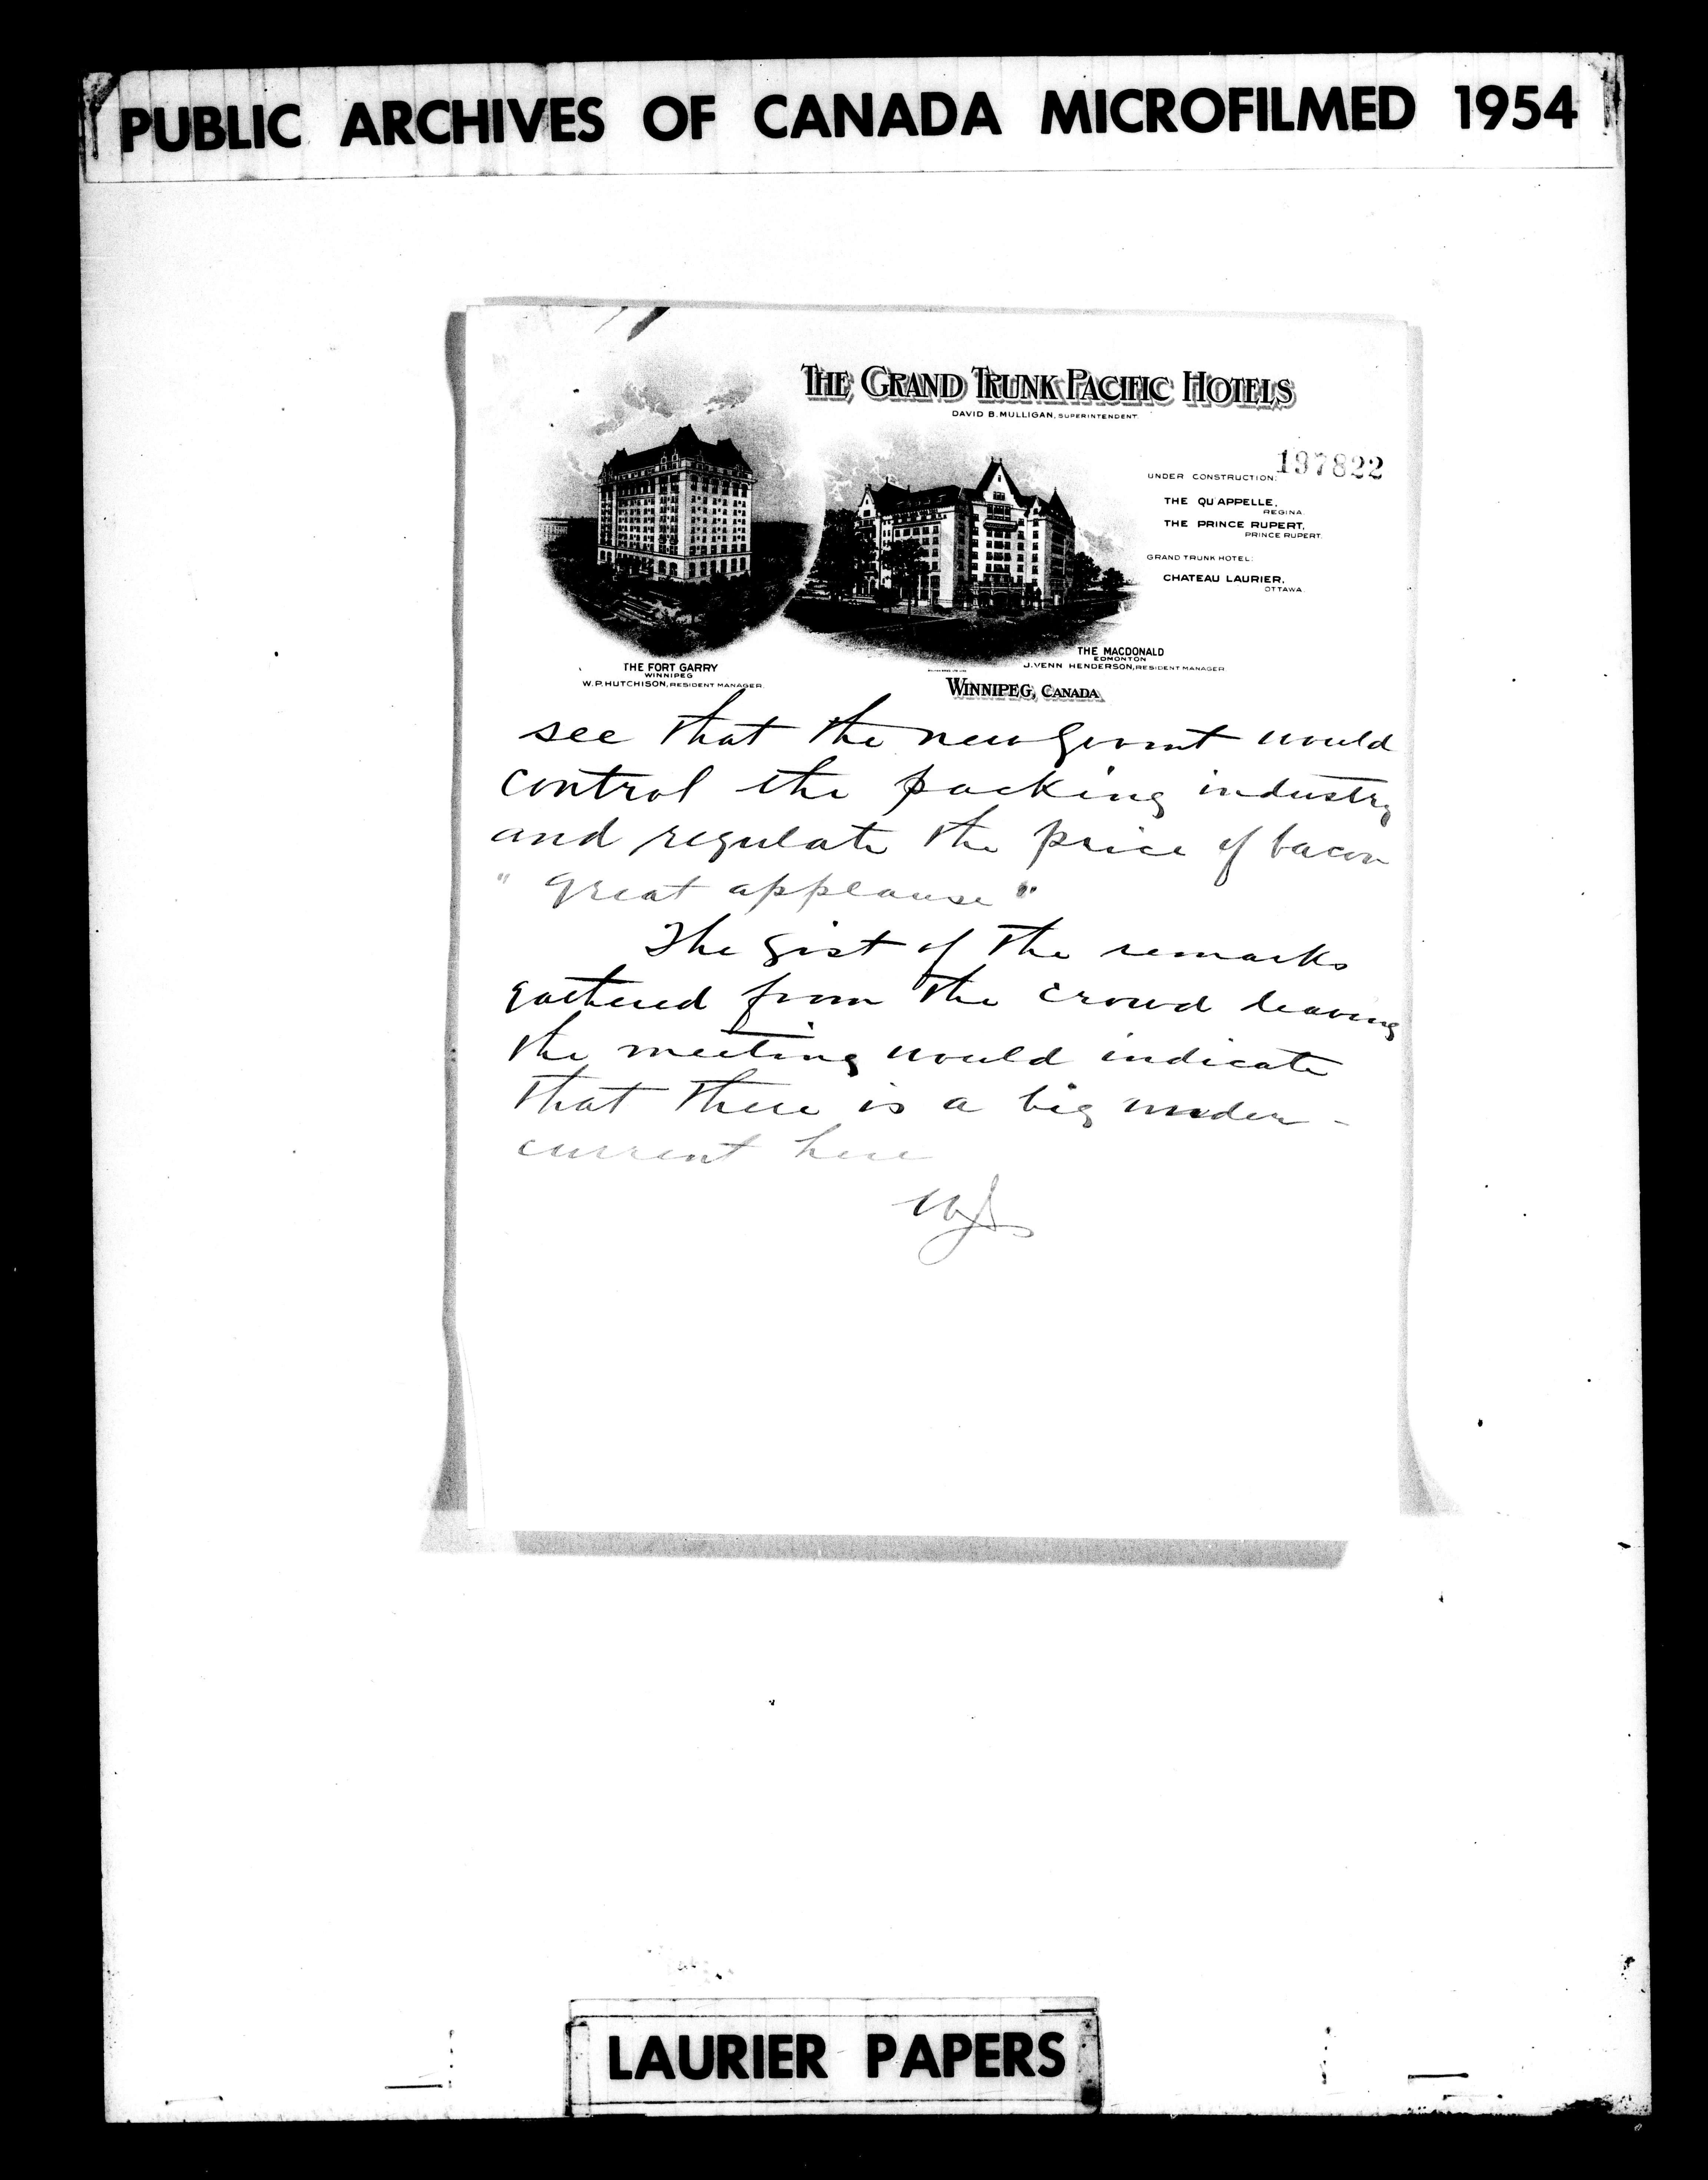 PUBLIC ARCHIVES OF CANADA MICROFILMED 1954
THE GRAND TRUNK PACIFIC HOTELS
DAVID B. MULLIGAN, SUPERINTENDENT.
197822
UNDER CONSTRUCTION:
THE QU'APPELLE,
REGINA.
THE PRINCE RUPERT,
PRINCE RUPERT.
GRAND TRUNK HOTEL:
CHATEAU LAURIER,
OTTAWA.
THE FORT GARRY
WINNIPEG
W.P. HUTCHISON, RESIDENT MANAGER.
THE MACDONALD
EDMONTON
J. VENN HENDERSON, RESIDENT MANAGER
WINNIPEG, CANADA
see that the new Govmt would
control the packing industry
and regulate the price of bacon
" great applause "
The gist of the remarks
gathered from the crowd leaving
the meeting would indicate
that there is a big under-
current here
LAURIER PAPERS